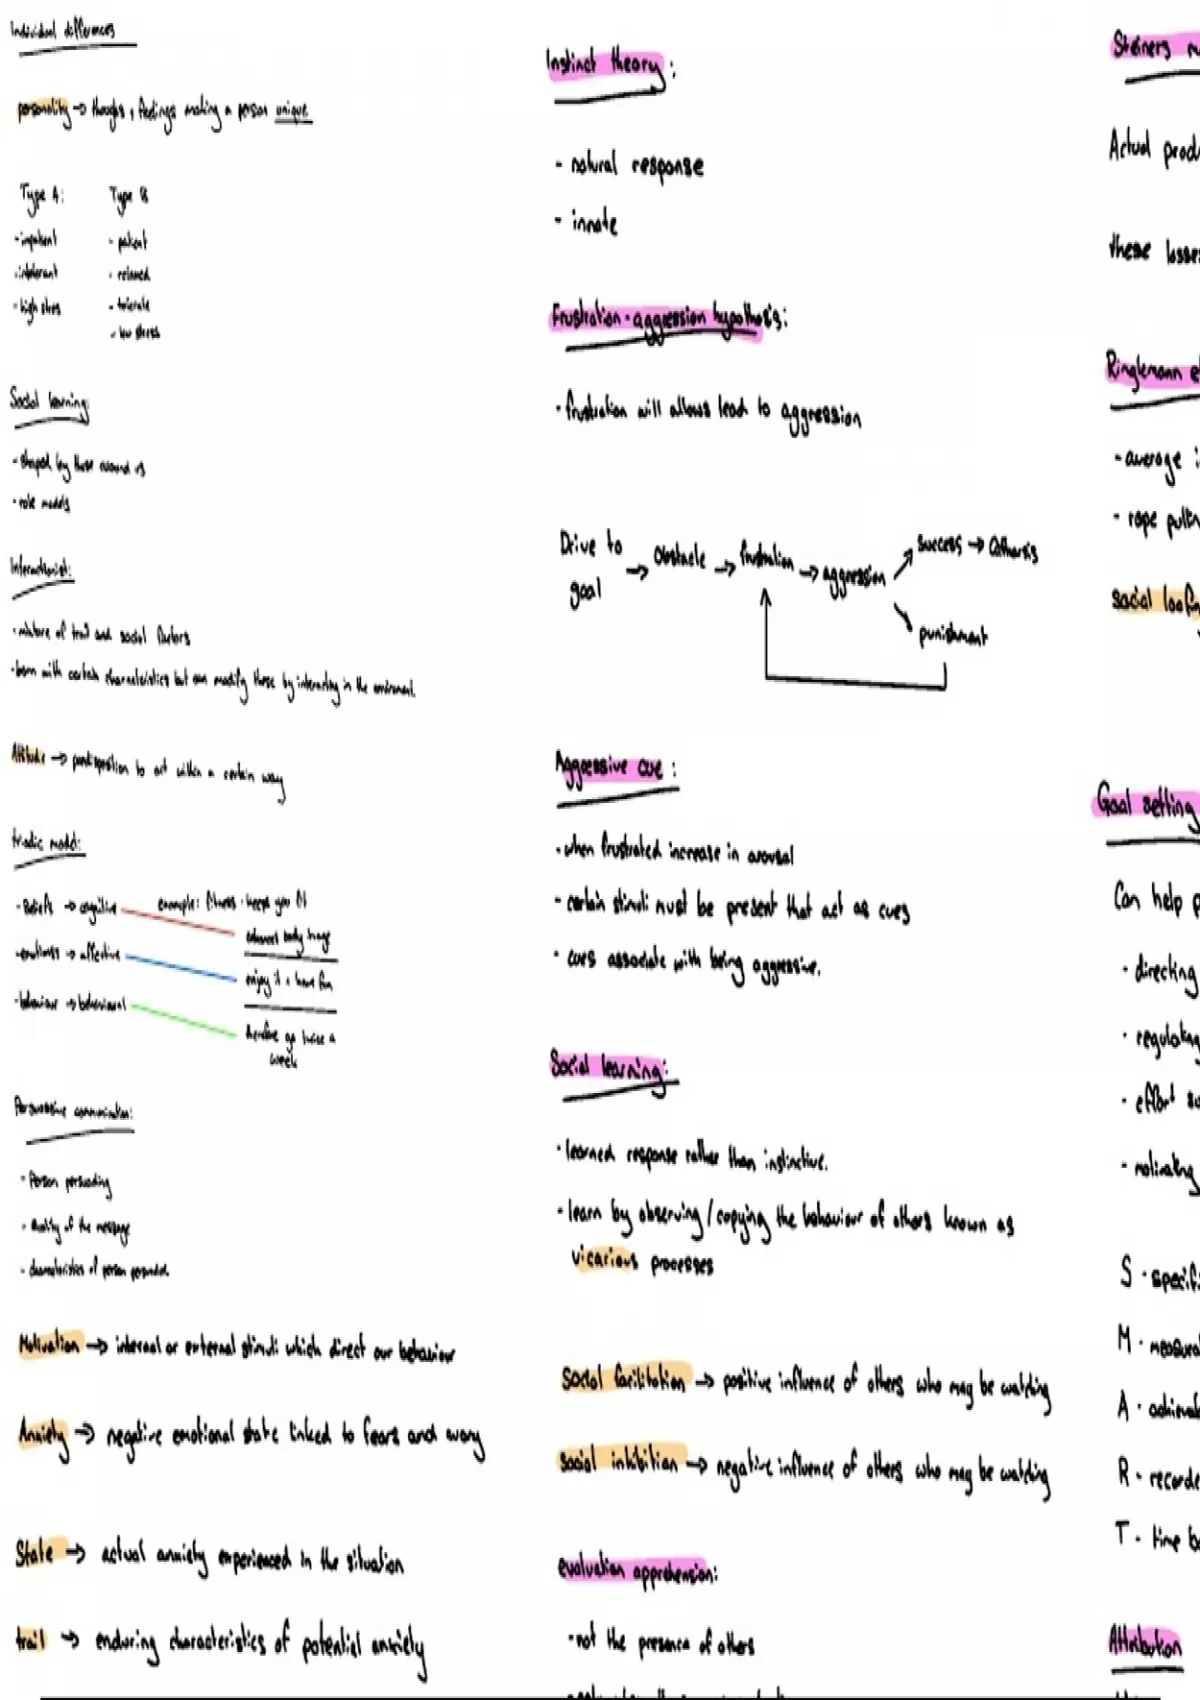 Individual differences
personality → thoughs, feelings making a person unique
Type A:
- impatient
- intolerant
- high stress
Type B
- patient
- relaxed
- tolerate
- low stress
Social learning:
- shaped by those around us
- role models
Interactionist:
- mixture of trait and social factors
- born with certain characteristics but can modify these by interacting in the environment.
Attitude → predisposition to act within a certain way
triadic model:
- Beliefs → cognitive
- emotions → affective
- behaviour → behavioural
example: fitness - keeps you fit
enhances body image
enjoy it + have fun
therefore go twice a
week
Persuasive communication:
- Person persuading
- Quality of the message
- characteristics of person persuaded.
Motivation → internal or external stimuli which direct our behaviour
Anxiety → negative emotional state linked to fears and worry
State → actual anxiety experienced in the situation
trait → enduring characteristics of potential anxiety
Instinct theory:
- natural response
- innate
Frustration-aggression hypothesis:
- frustration will allows lead to aggression
Drive to
goal
→ Obstacle → frustration → aggression
success → Catharsis
punishment
Aggressive cue:
- when frustrated increase in arousal
- certain stimuli must be present that act as cues
- cues associate with being aggressive.
Social learning:
- learned response rather than instinctive.
- learn by observing/copying the behaviour of others known as
vicarious processes
Social facilitation → positive influence of others who may be watching
social inhibition → negative influence of others who may be watching
evaluation apprehension:
- not the presence of others
Steiners
Actual
these losses
Ringlemann
- average
- rope
social
Goal setting
Can help
- directing
- effort
S - 
M - 
A - 
R - 
T - time
Attribution